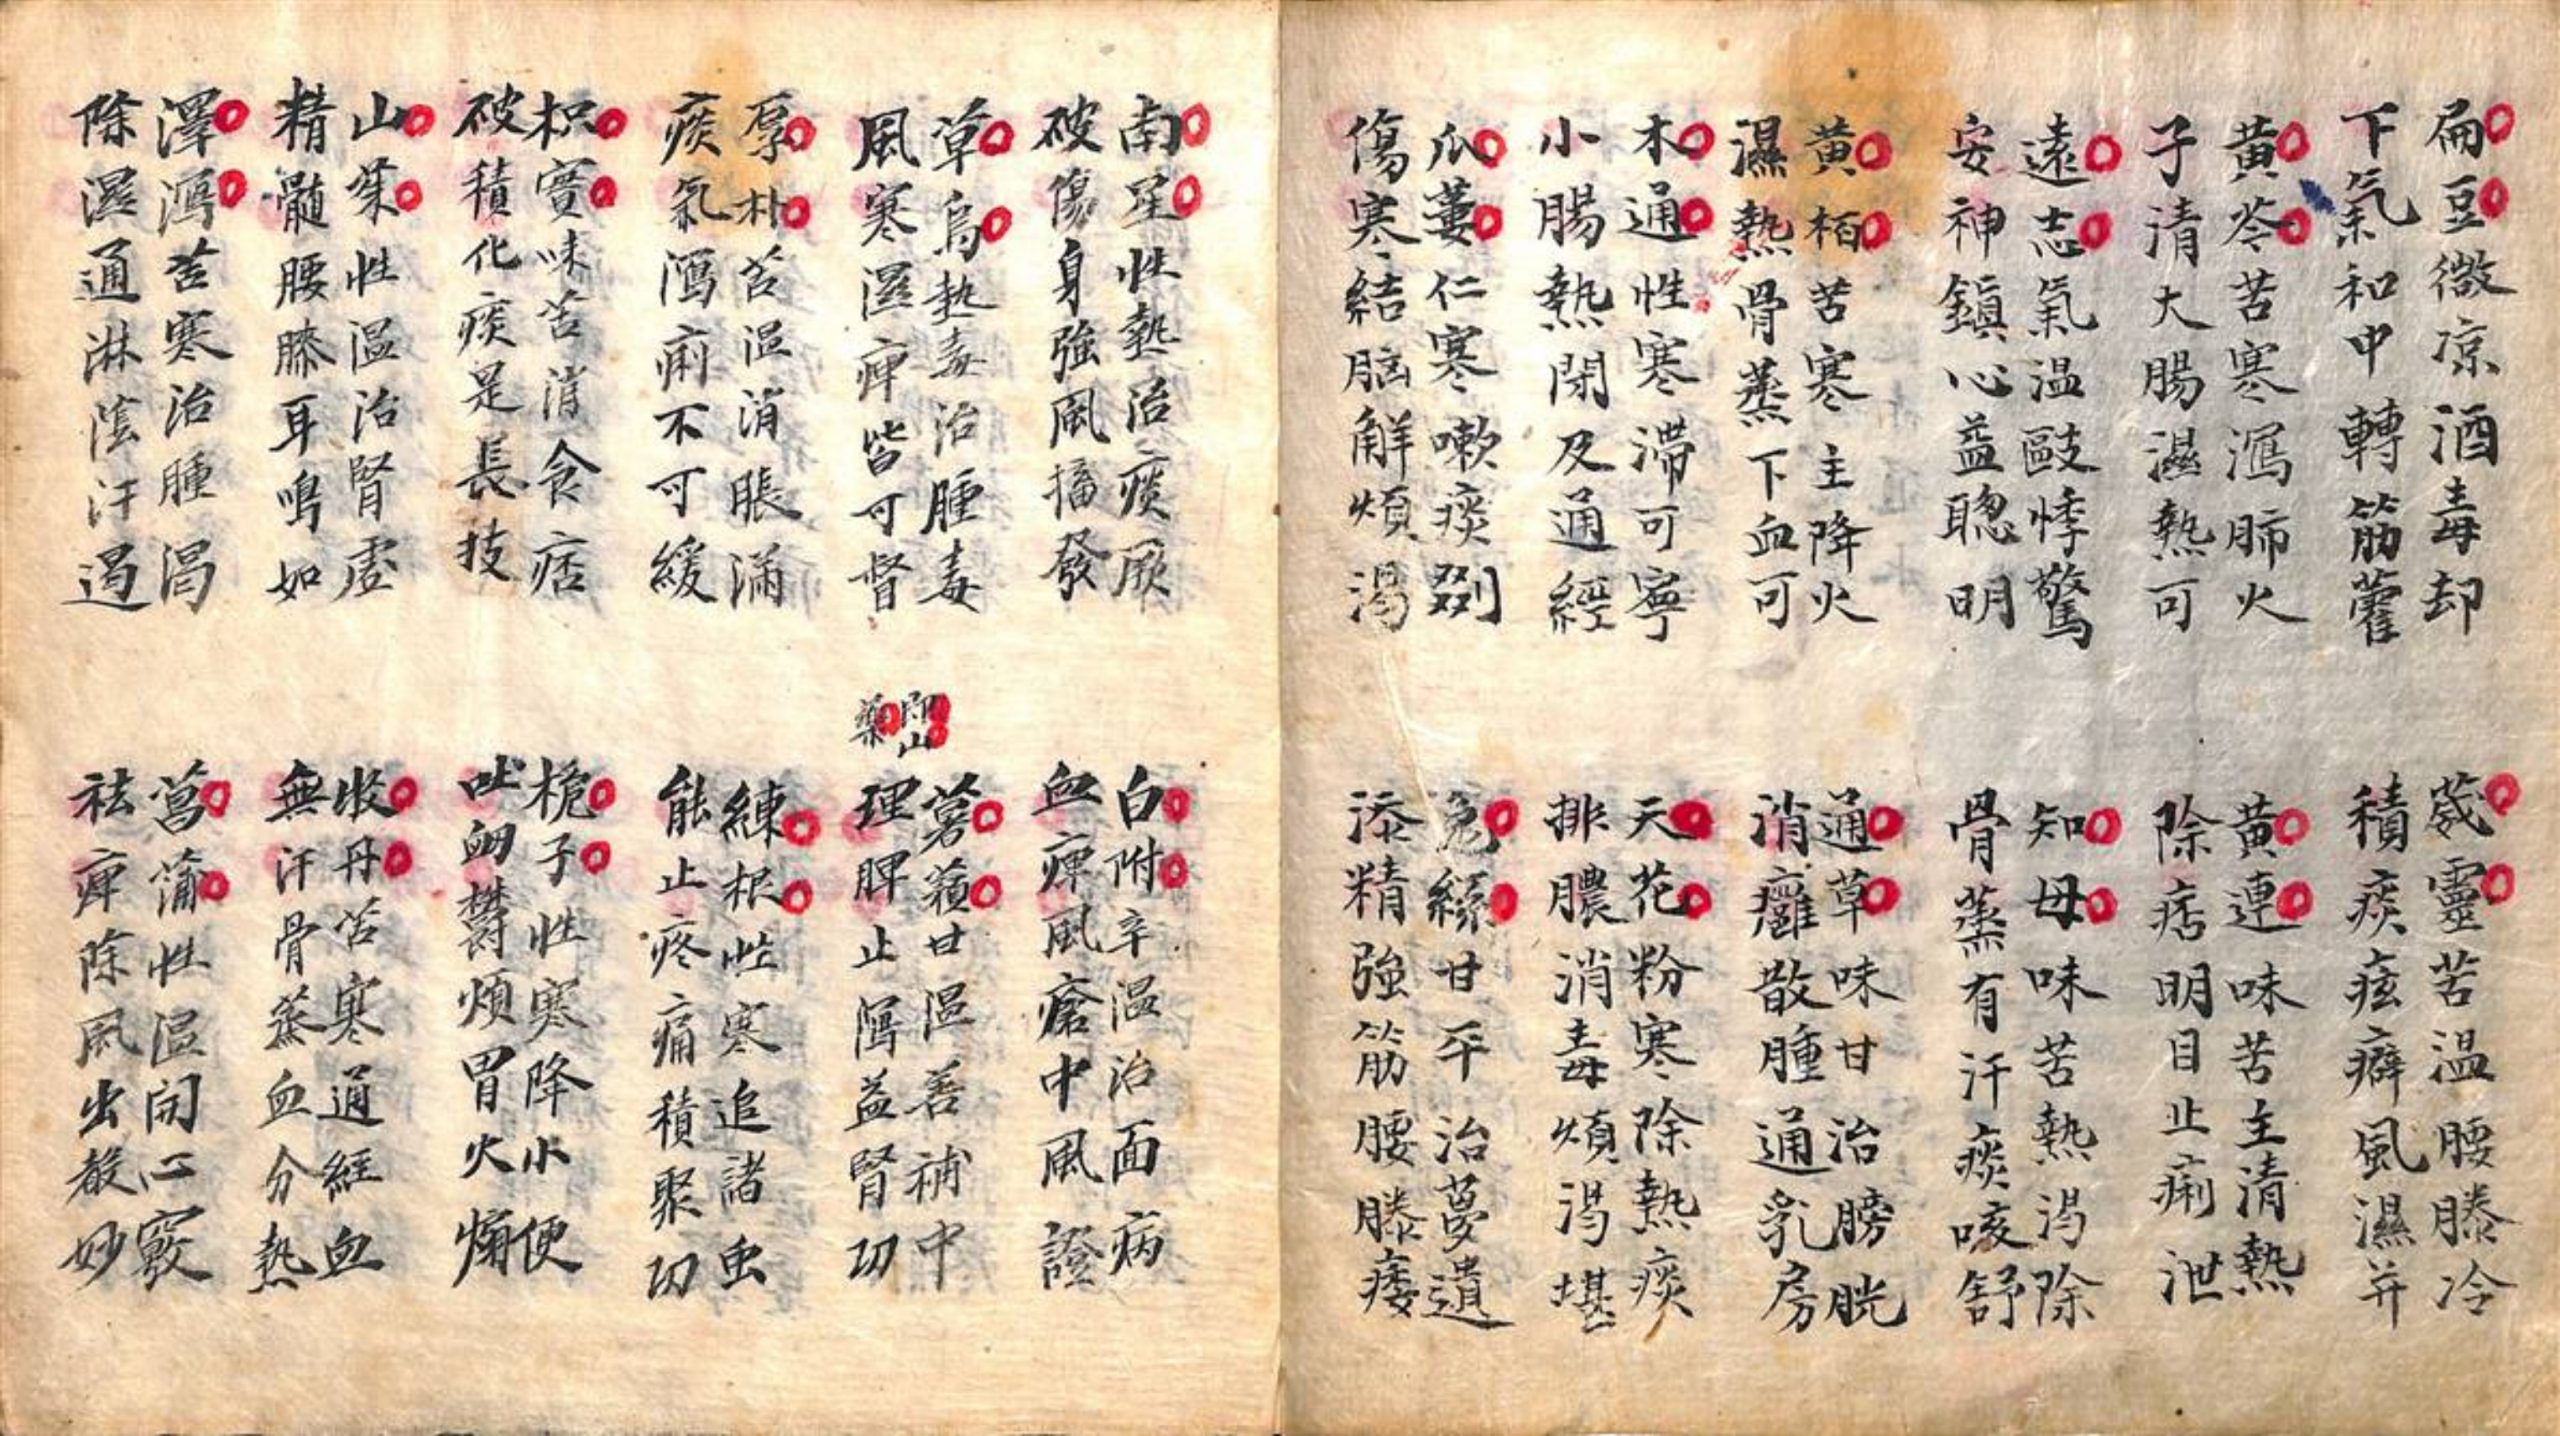 扁豆微凉酒毒却
下氣和中轉筋藿
黃芩苦寒瀉肺火
子清大腸濕熱可
遠志氣温敺悸驚
安神鎮心益聰明
黃栢苦寒主降火
濕熱骨蒸下血可
木通性寒滯可寧
小腸熱閉及通經
瓜蔞仁寒嗽痰剟
傷寒結脑解煩渴
葳靈苦温腰膝冷
積痰痃癖風濕并
黃連味苦主清熱
除痞明目止痢泄
知母味苦熱渴除
骨蒸有汗痰咳舒
通草味甘治膀胱
消癰散腫通乳房
天花粉寒除熱痰
排膿消毒煩渴堪
兔絲甘平治夢遺
添精強筋腰膝痿
南星性熱治痰厥
破傷身強風搐發
草烏熱毒治腫毒
風寒濕痺皆可督
厚朴苦温消脹滿
痰氣瀉痢不可緩
枳實味苦消食痞
破積化痰是長技
山茱性温治腎虚
精髓腰膝耳鳴如
澤瀉苦寒治腫渴
除濕通淋陰汗遏
白附辛温治面病
血痺風瘡中風證
薯蕷甘温善補中
即山藥
理脾止瀉益腎功
練根性寒追諸虫
能止疼痛積聚功
梔子性寒降小便
吐衄欝煩胃火煽
牧丹苦寒通經血
無汗骨蒸血分熱
菖蒲性温開心竅
袪痺除風出聲妙